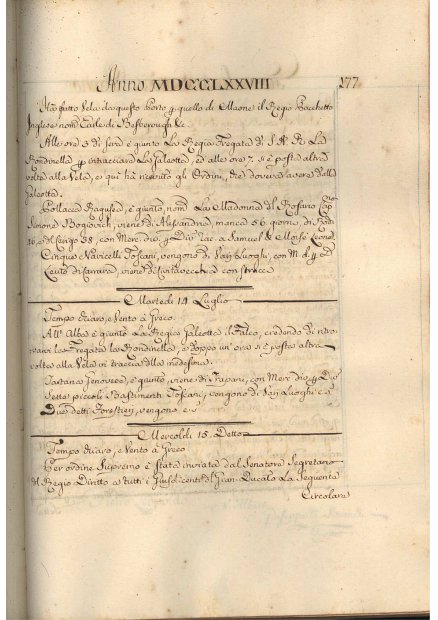 Anno MDCCLXXVIII 177
Ha fatto Vela da questo Porto p. quello di Maone il Regio Pacchetto
Inglese nom.° Earle di Besborough &c.
Alle ore 3 di sera è giunto La Regia Fregata di S. A. R. La
Rondinella p. intracciare La Galeotta, ed alle ore 7. si è posta altra
volta alla Vela, e qui hà ricevuto gli Ordini, che doveva avere dalla
Galeotta.
Pollacca Ragusea, è giunto, nom. La Madonna del Rosario Cap.no
Simone Bogiovich, viene di Alessandria, manca 56 giorni, di
e del Zerigo 38, con Merc. div. p. Divi. rac. a Samuel & Moisè Leone
Cinque Navicelli Toscani, vengono di Varj Luoghi, con M. d. p. e
Leuto di Camura, viene di Civitavecchia con stracci
Martedi 14 Luglio
Tempo chiaro, e Vento à Greco.
All' Alba è giunto La Regia Galeotta il Falco, credendo di ritro-
varvi La Fregata La Rondinella, e doppo un' ora si è posta altra
volta alla Vela in traccia della medesima.
Tartana Genovese, è giunto, viene di Trapani, con Merc. div. p. Divi
Sette piccoli Bastimenti Toscani, vengono di Varj Luoghi c. s.
Due detti Forestieri, vengono c. s.
Mercoldi 15. Detto
Tempo chiaro, e Vento à Greco
Per ordine Supremo è stata inviata dal Senatore Segretario
del Regio Diritto a tutti i Giusdicenti del Gran-Ducato La Seguente
Circolare